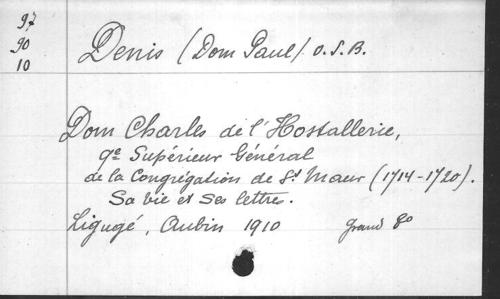 97
90
10
Denis (Dom Paul) O.S.B.
Dom Charles de l'Hostallerie,
9e Supérieur Général
de la Congrégation de St Maur (1714-1720).
Sa vie et ses lettre.
Ligugé, Aubin 1910 grand 8o